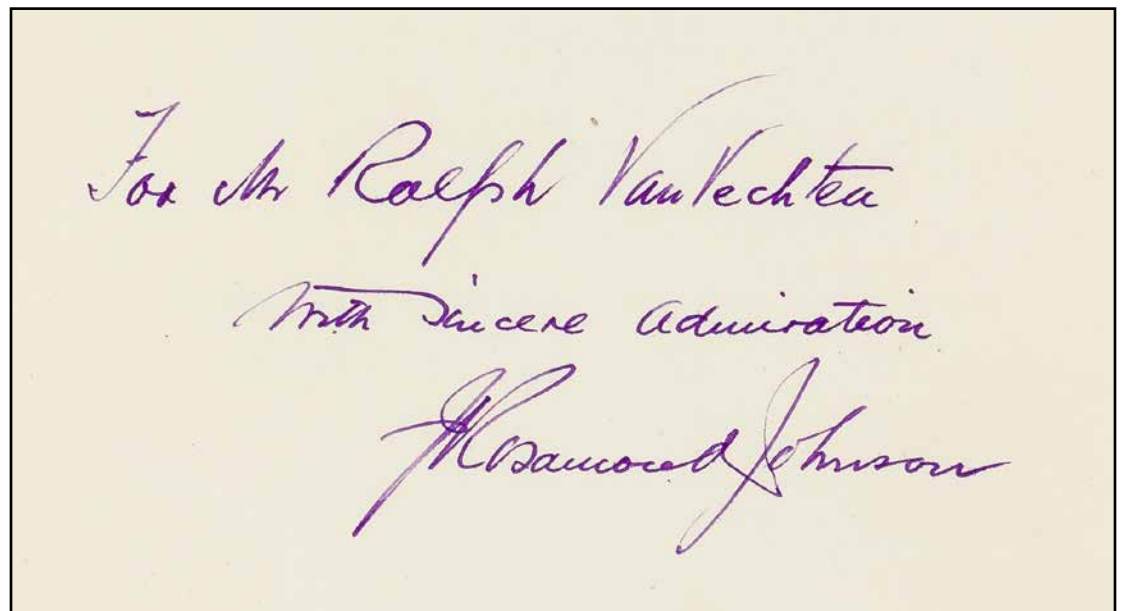 For Mr Ralph Van Vechten
With Sincere Admiration
J Rosamond Johnson